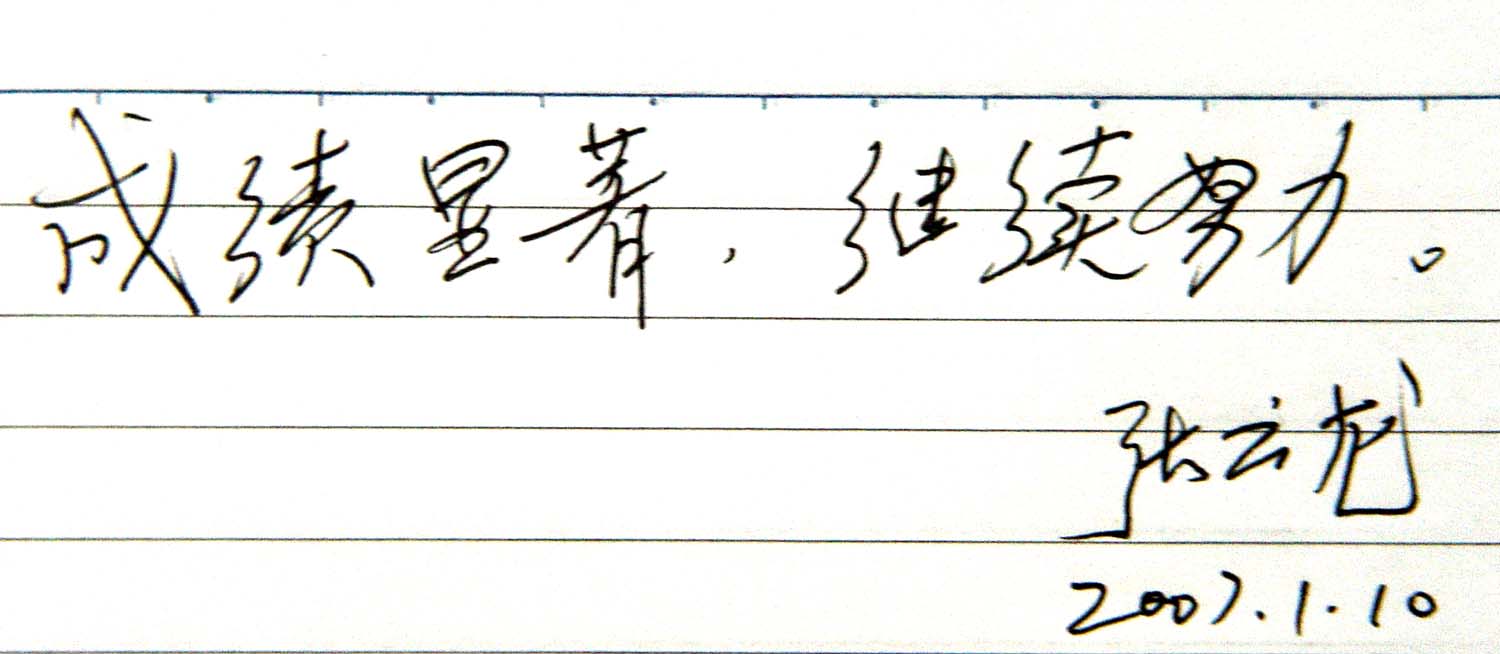 成绩显著，继续努力。
张云龙
2007.1.10